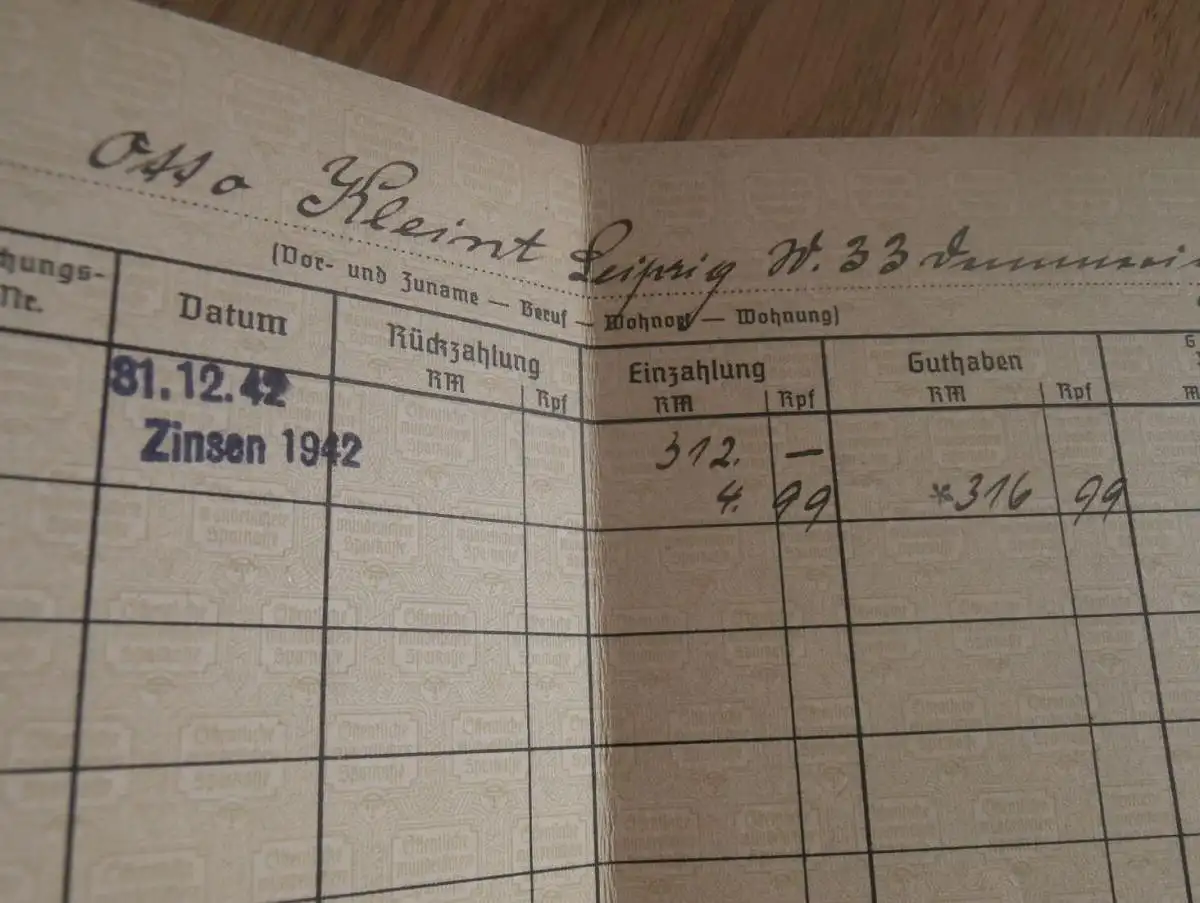 Otto Kleint Leipzig W. 33
(Vor- und Zuname — Beruf — Wohnort — Wohnung)
chungs-
Nr.
Datum
Rückzahlung
RM Rpf
Einzahlung
RM Rpf
Guthaben
RM Rpf
31.12.42 312. —
Zinsen 1942 4. 99 *316 99
Öffentliche
mündelsichere
Sparkasse